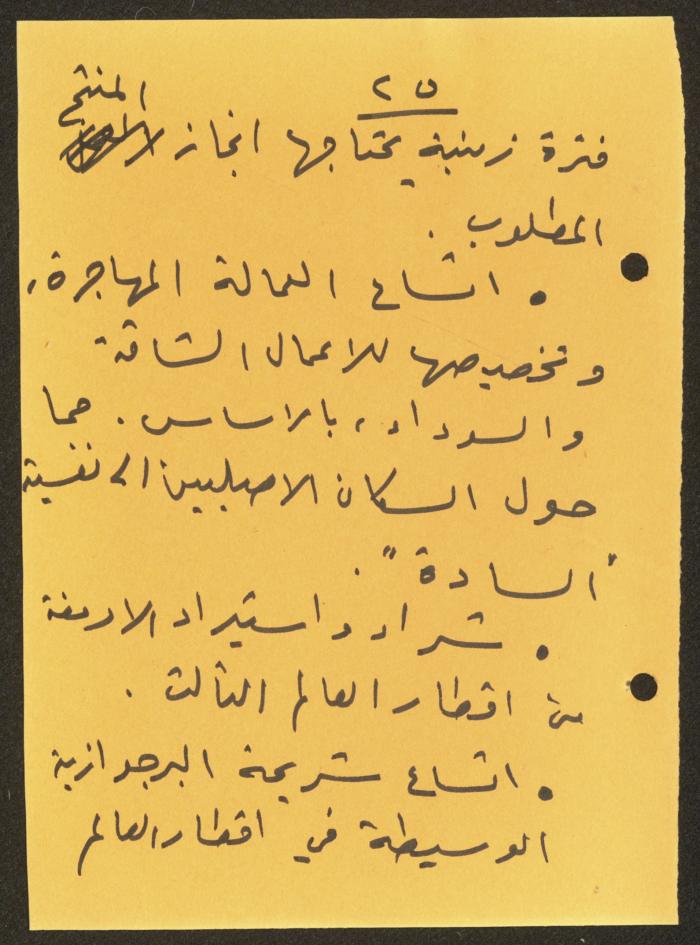 ٢٥
المنتج
فترة زمنية يحتاجها انجاز
المطلوب.
• اتساع العمالة المهاجرة،
وتخصيصها للاعمال الشاقة
والسوداء، بالاساس. مما
حول السكان الاصليين الى نفسية
"السادة".
• شراء واستيراد الادمغة
من اقطار العالم الثالث.
• اتساع شريحة البرجوازية
الوسيطة في اقطار العالم